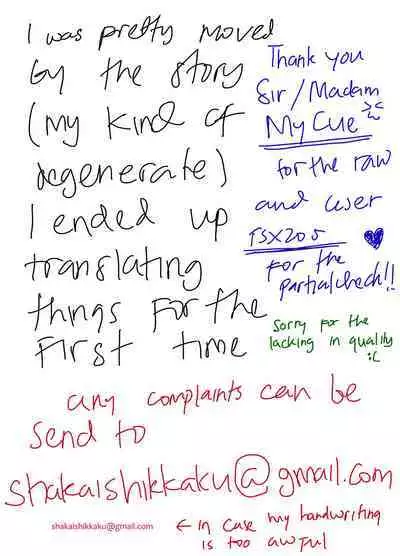 I was pretty moved
by the story
(my kind of
degenerate)
I ended up
translating
things for the
first time
Thank you
Sir/Madam
MyCue ><
for the raw
and user
TSX205
♥
for the
partial check!!
sorry for the
lacking in quality
:(
any complaints can be
send to
shakaishikkaku@gmail.com
shakaishikkaku@gmail.com
← in case my handwriting
is too awful